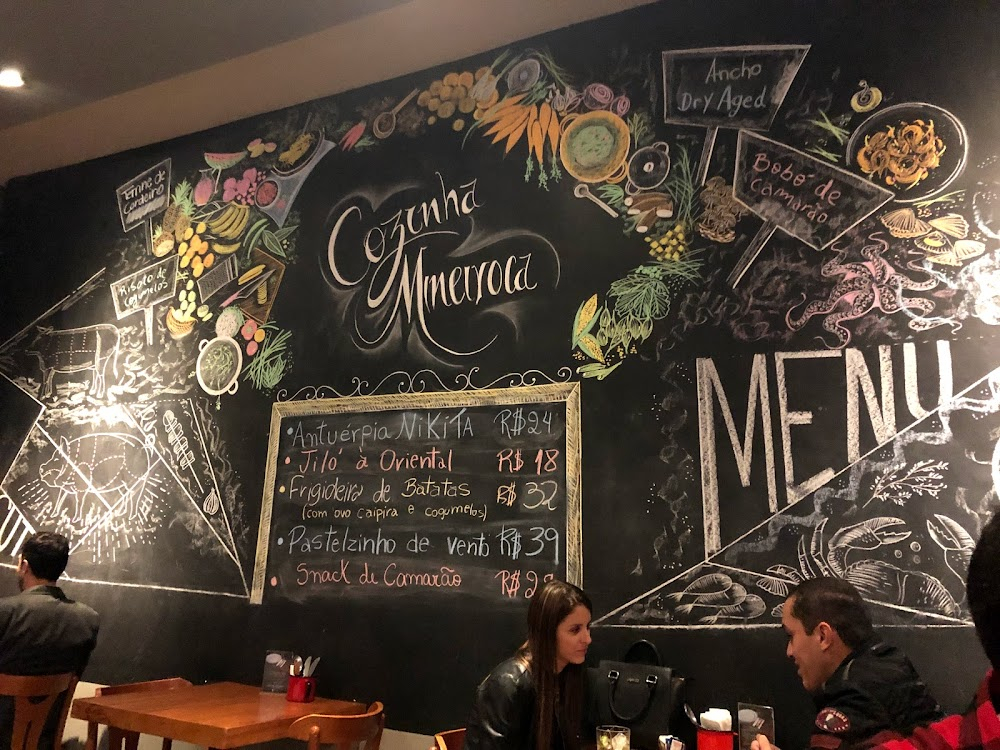 Ancho
Dry Aged
Bobó de
Camarão
Cordeiro
Risoto de
cogumelos
Cozinha
Mineiroca
MENU
• Antuérpia NiKiTA R$24
• Jiló à Oriental R$ 18
• Frigideira de Batatas R$ 32
(com ovo caipira e cogumelos)
• Pastelzinho de vento R$39
• Snack de Camarão R$